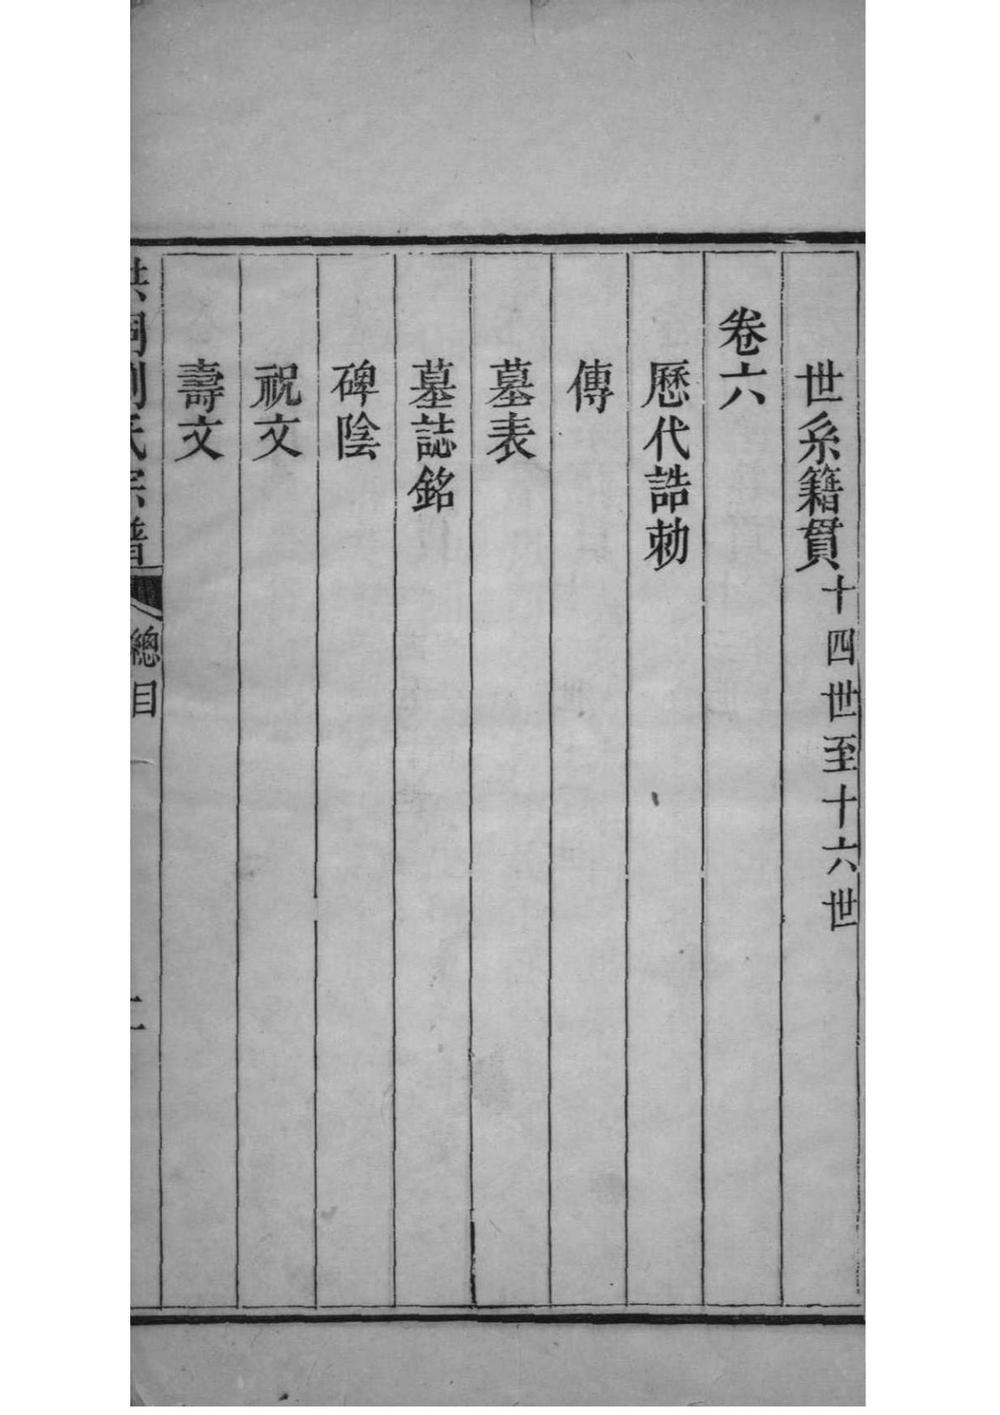 世系籍貫十四世至十六世
卷六
歷代誥勅
傳
墓表
墓誌銘
碑陰
祝文
壽文
洪洞劉氏宗譜 總目 二